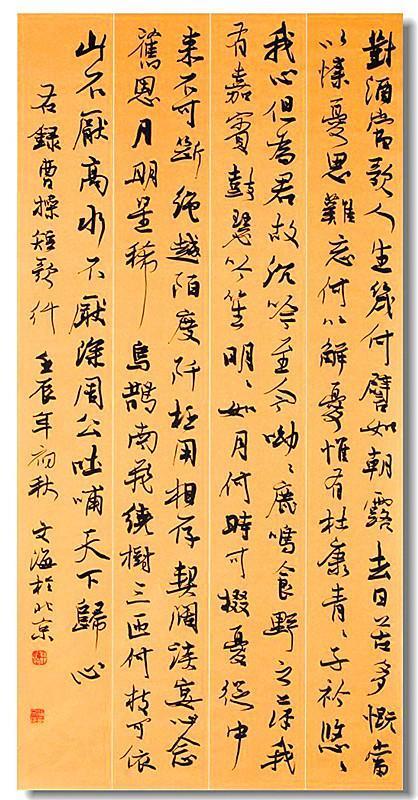 對酒當歌人生幾何譬如朝露去日苦多慨當
以慷憂思難忘何以解憂惟有杜康青〻子衿悠〻
我心但為君故沉吟至今呦〻鹿鳴食野之苹我
有嘉賓鼓瑟吹笙明〻如月何時可掇憂從中
来不可斷絕越陌度阡枉用相存契闊談宴心念
舊恩月明星稀烏鵲南飛繞樹三匝何枝可依
山不厭高水不厭深周公吐哺天下歸心
右錄曹操短歌行 壬辰年初秋 文海於北京